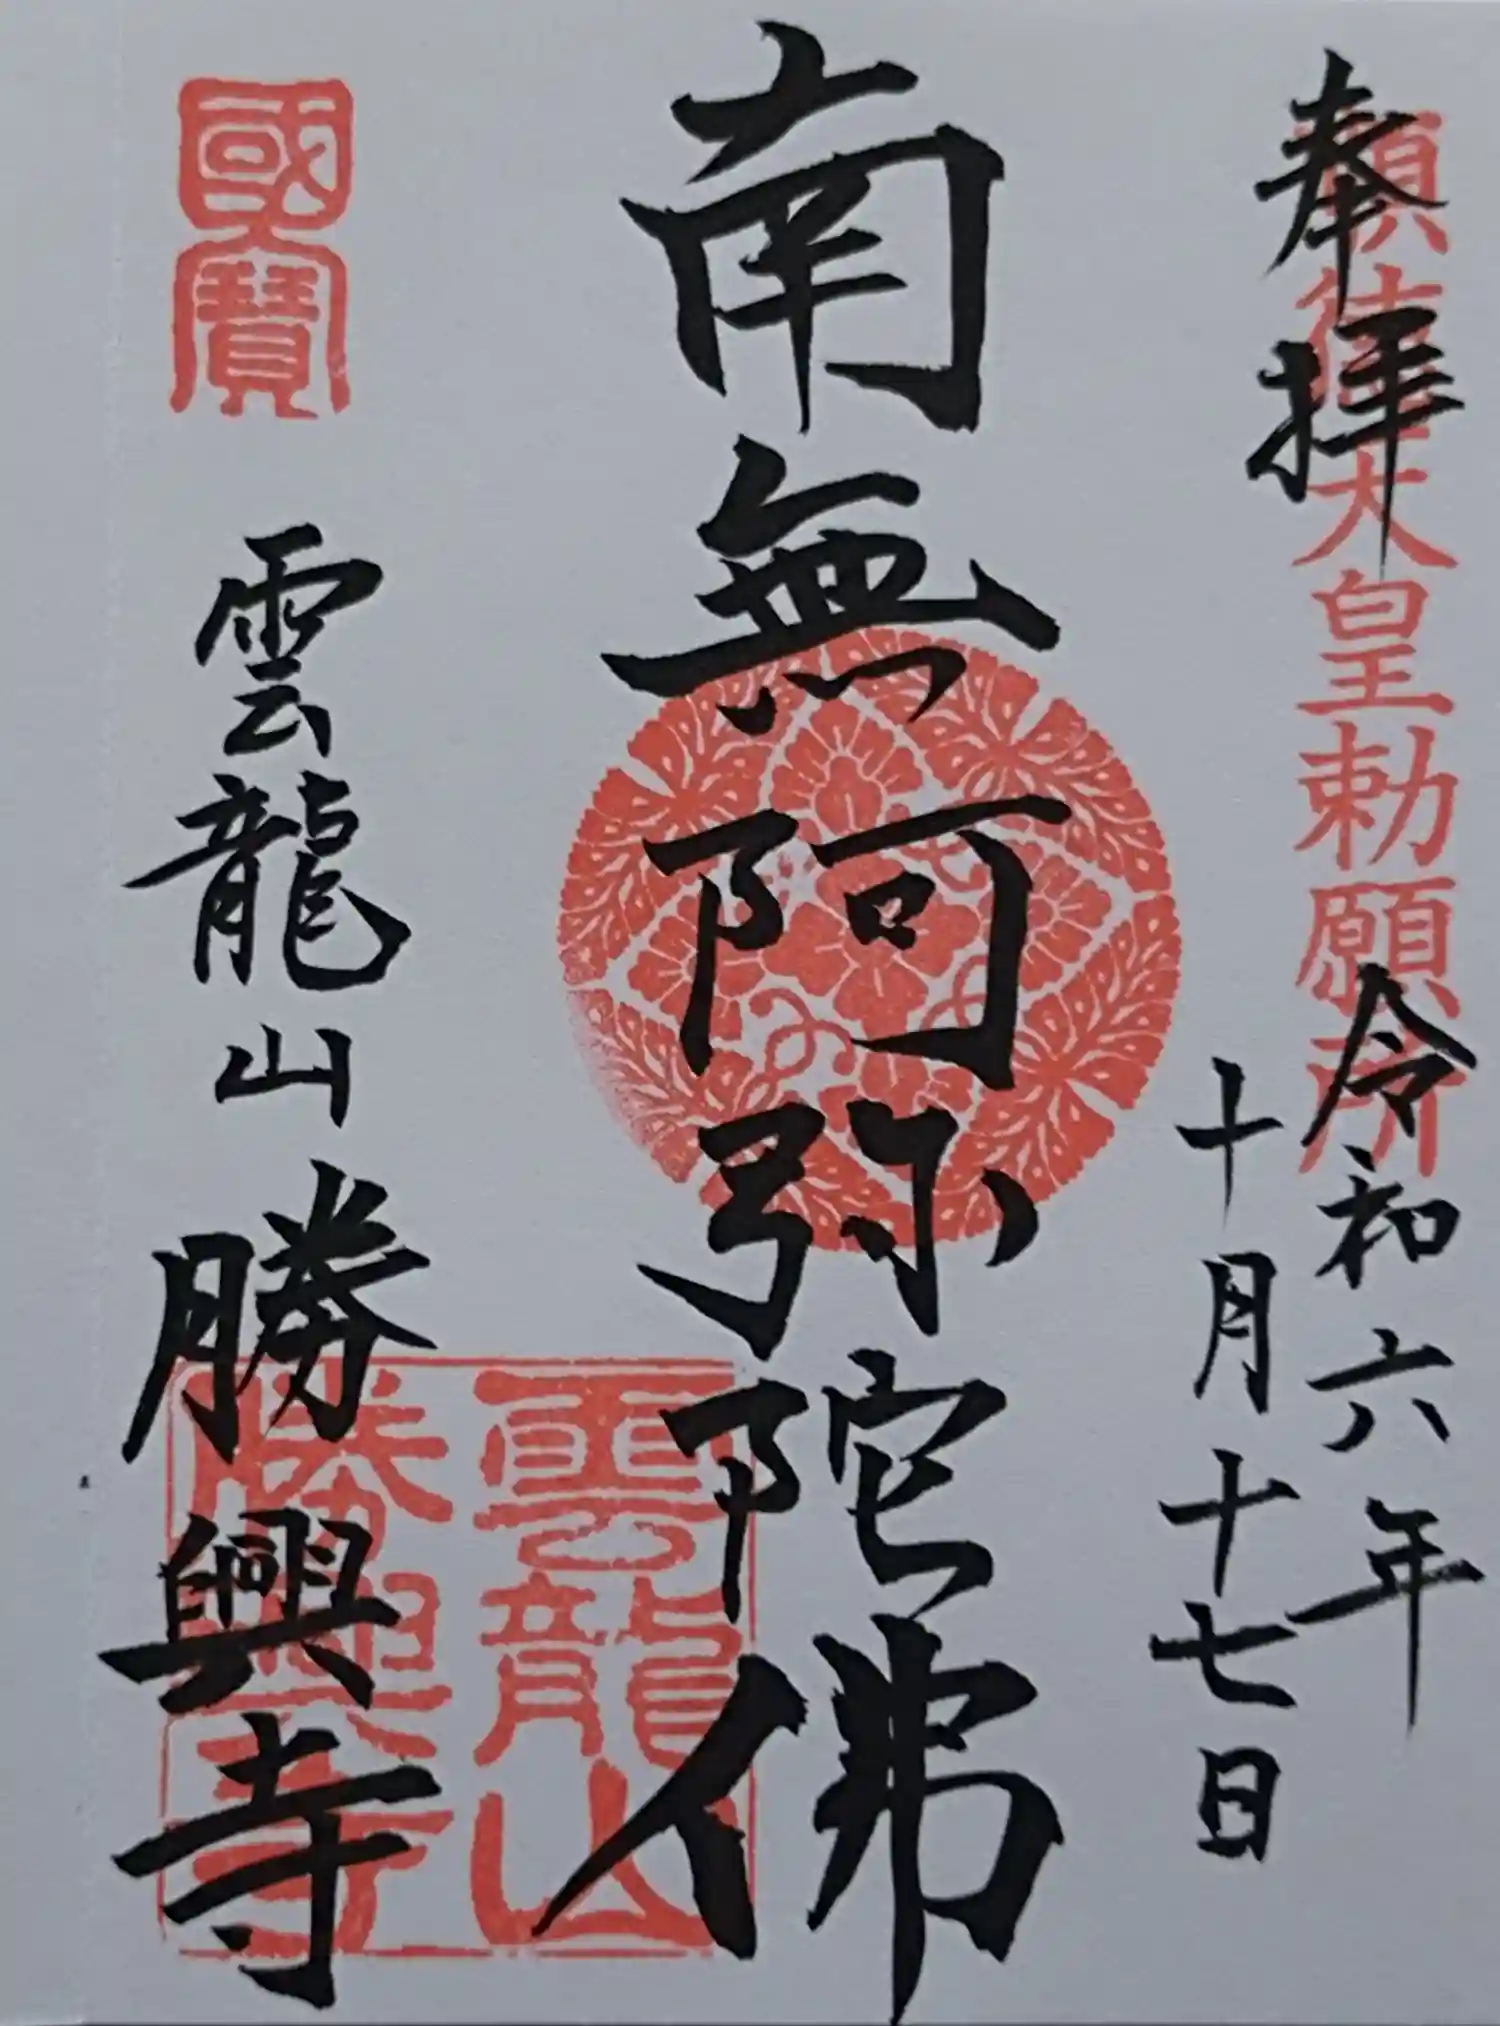 奉拝
順徳天皇勅願所
令和六年
十月十七日
南無阿弥陀佛
國寶
雲龍山 勝興寺
雲龍山
勝興寺